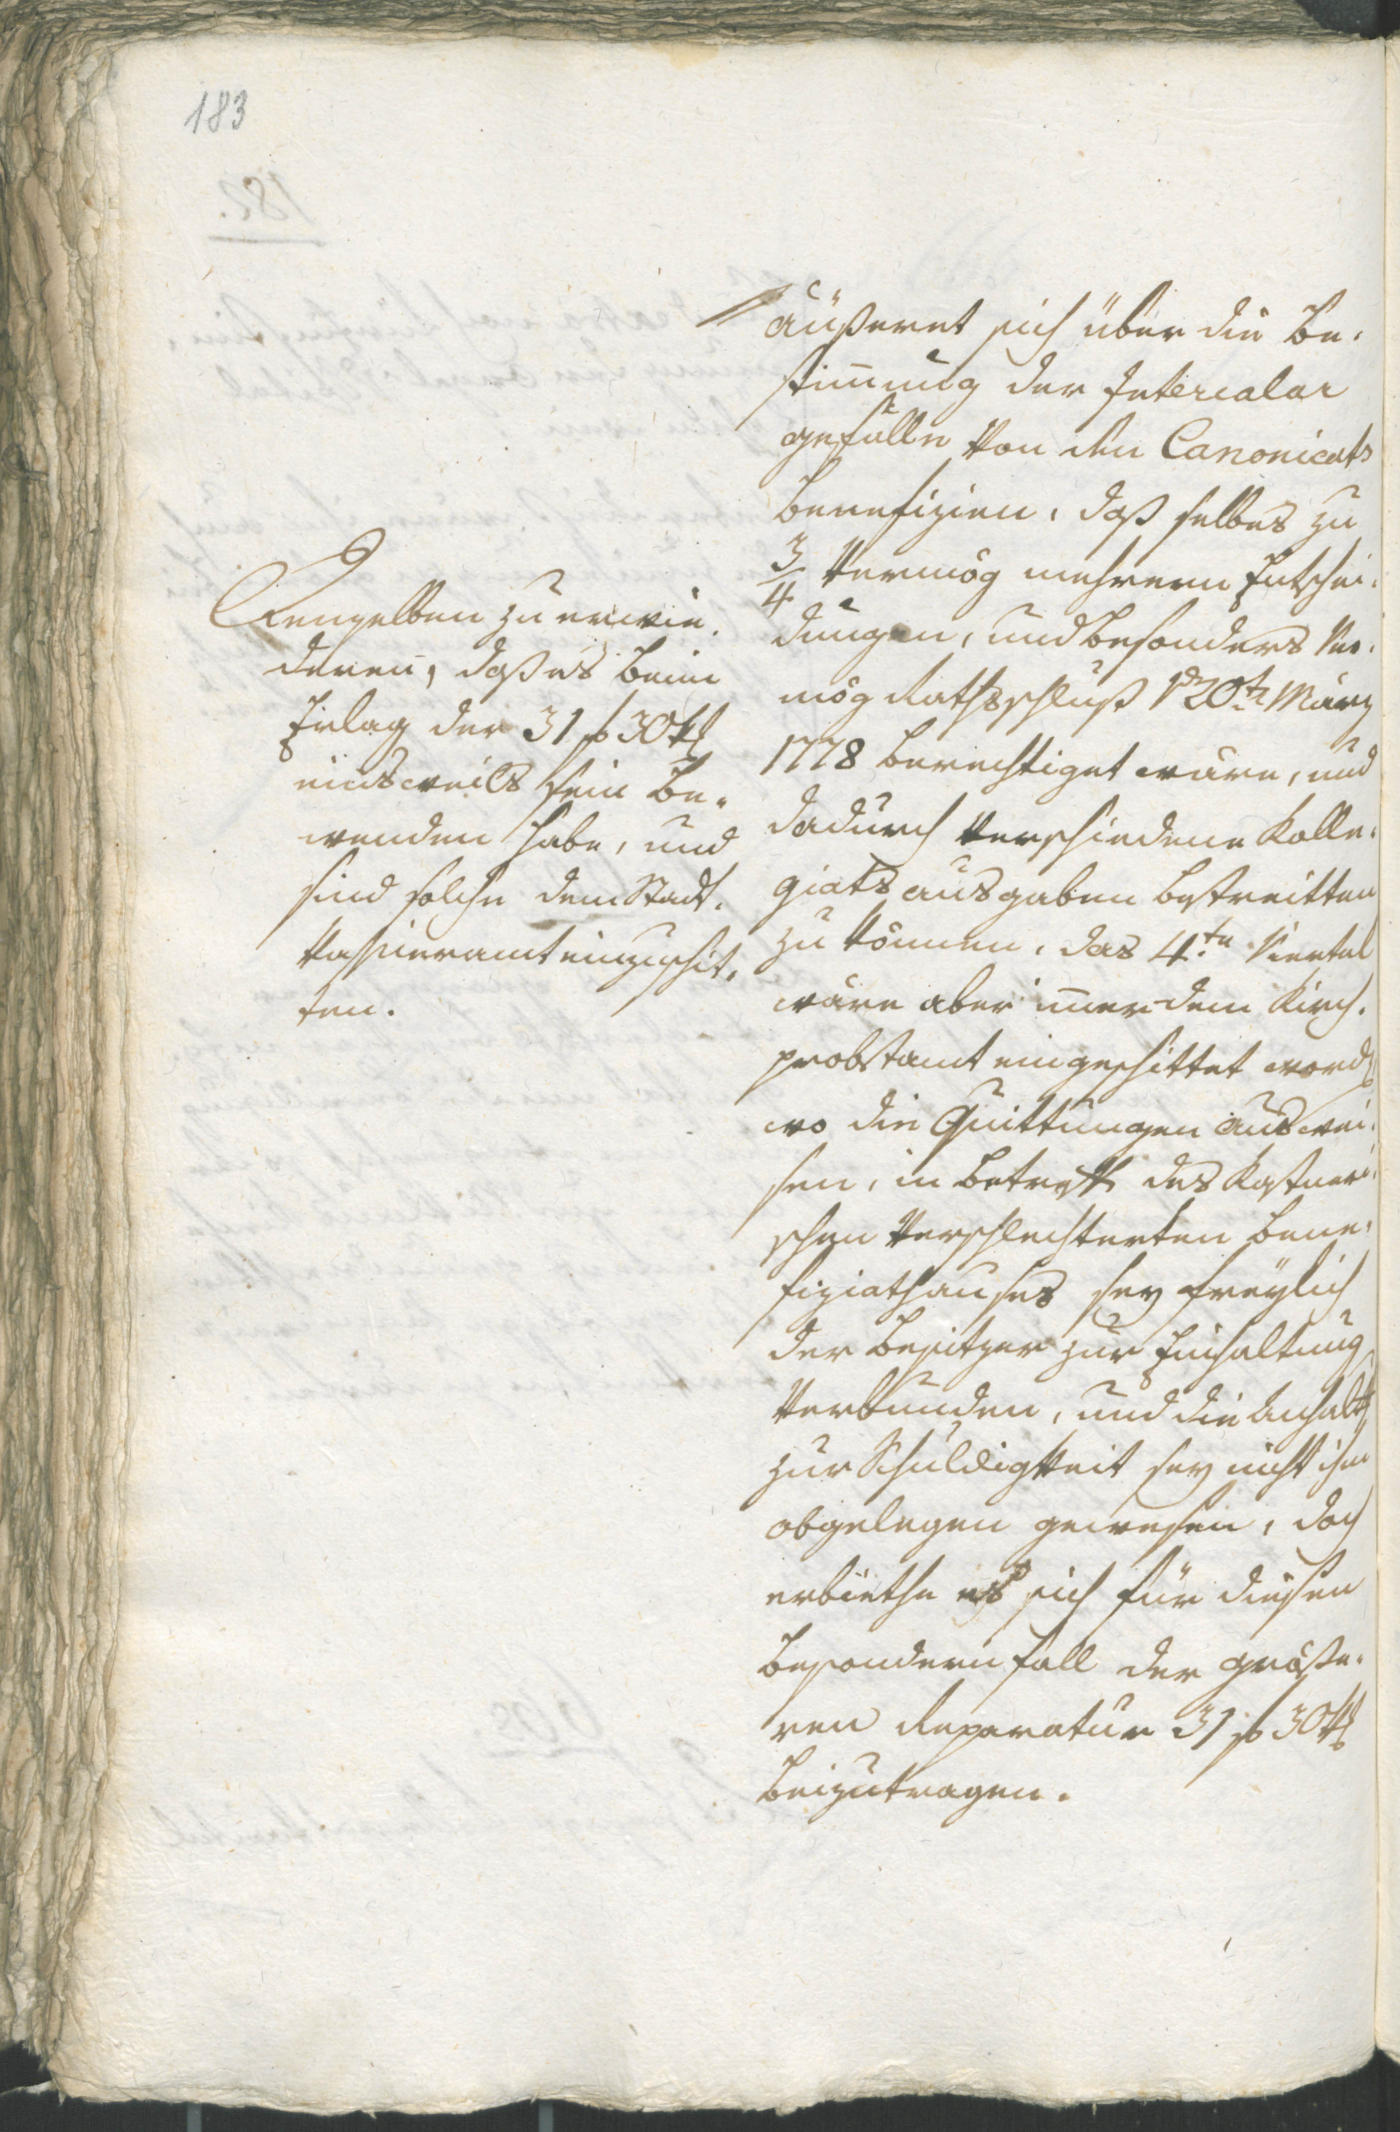 183
äußeret sich über die Be-
stim̄ung der Intercalar
gefälle von den Canonicats
Benefizien, daß selbes zu
3/4 vermög mehrern Entschei-
dungen, und besonders ver-
mög Rathsschluß 20t März
1778 berechtiget wäre, und
dadurch verschiedene Kolle-
giats ausgaben bestreitten
zu können, das 4.te Viertel
wäre aber im̄er dem Kirch-
probstamt eingeschittet word
wo die Quittungen auswei-
sen, in betreff des Kastneri-
schen verschlechterten Bene-
fiziathauses sey freylich
der Besitzer zur Einhaltung
verbunden, und die Anhalt
zur Schuldigkeit sey nicht ihm
obgelegen gewesen, doch
erbiethe es sich für diesen
besondern fall der größe-
ren Reparatur 31 f 30 k
beizutragen.
Demselben zu erwie-
deren, daß es beim
Erlag der 31 f 30 k
einsweils sein Be-
wenden habe, und
sind solche dem Stadt-
kassieramt einzuschit-
ten.